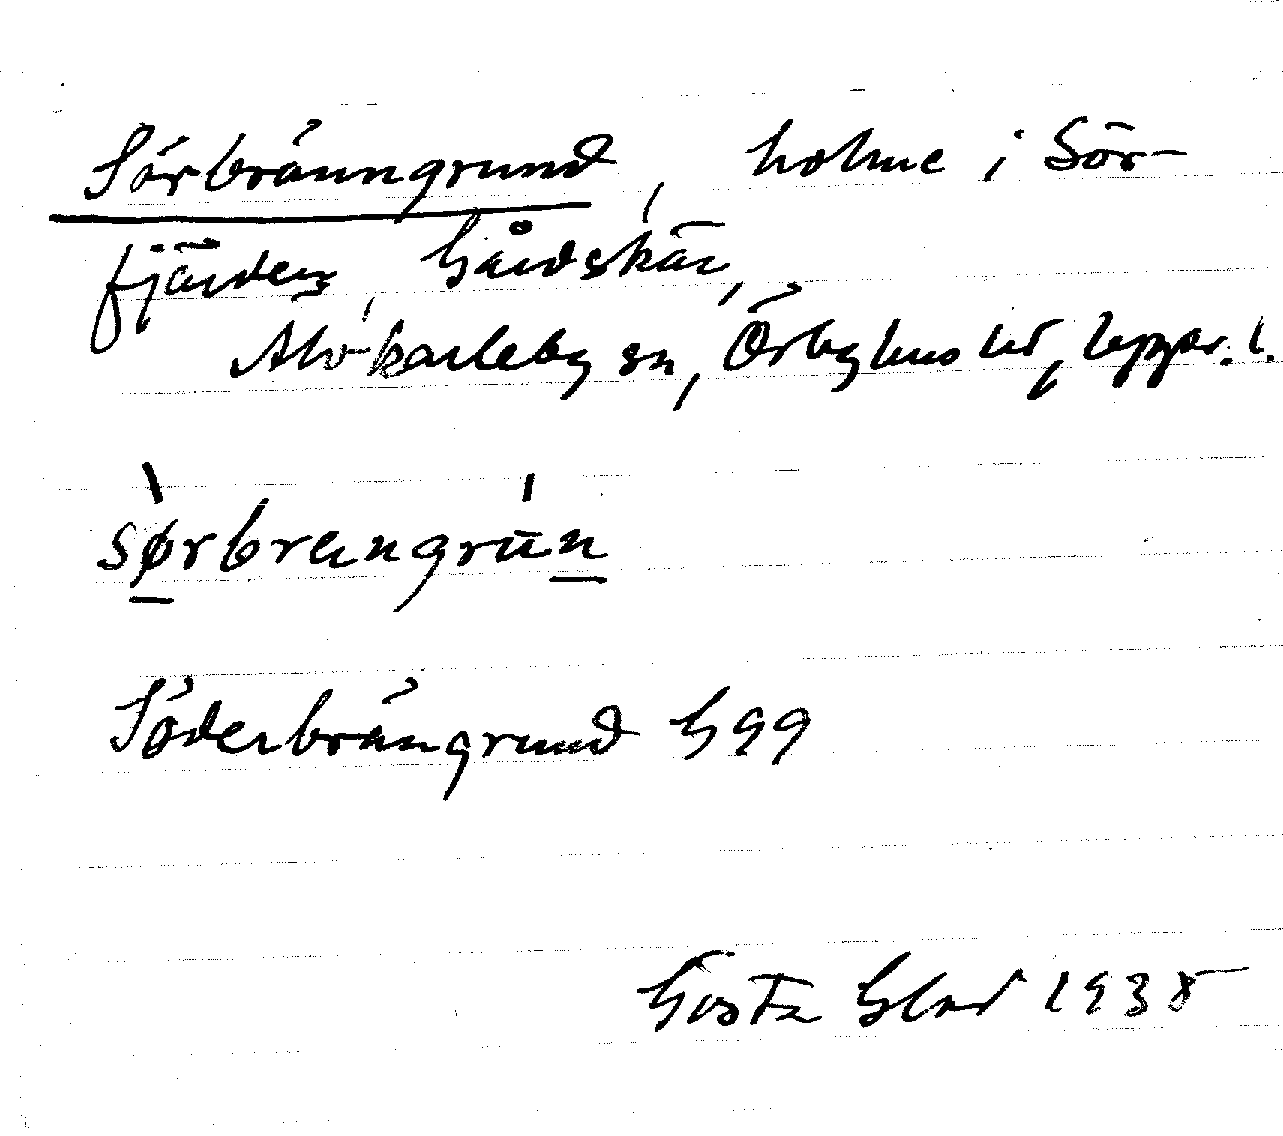 Sörbränngrund, holme i Sör-
fjärden, Gårdskär,
Älvkarleby sn, Örbyhus hd, Uppsl. l.
sørbrengrun
Söderbrängrund G99
Gösta Glad 1938